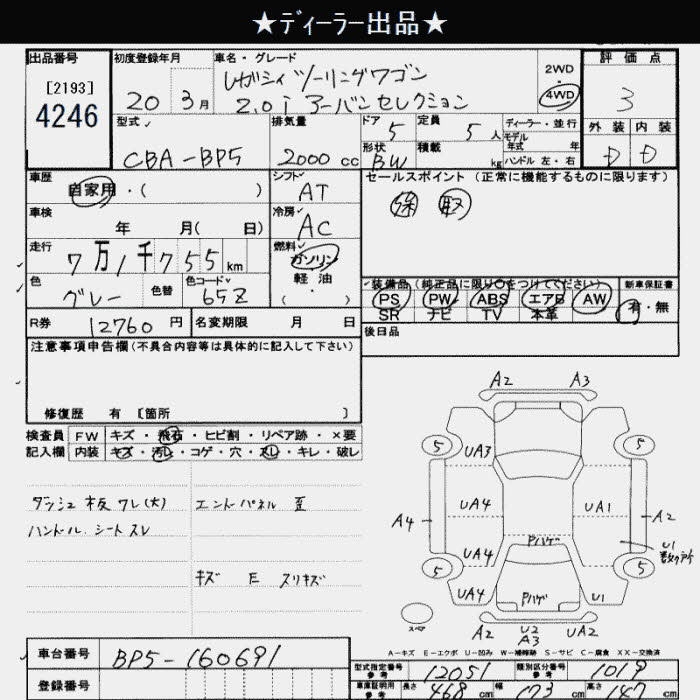 ★ディーラー出品★
出品番号
[2193]
4246
初度登録年月
20年 3月
車名・グレード
レガシィツーリングワゴン
2.0i アーバンセレクション
2WD
4WD
評価点
3
外装 内装
D D
型式
CBA-BP5
排気量
2000 cc
ドア 5
形状 BW
定員 5 人
積載 kg
ディーラー・並行
モデル年式 年
ハンドル 左・右
車歴
自家用・( )
シフト
AT
セールスポイント (正常に機能するものに限ります)
保 取
車検
年 月( 日)
冷房
AC
走行
7万1千755 km
燃料
ガソリン
軽油
( ・ )
色
グレー
色替
色コード
65Z
装備品 (純正品に限り〇をつけてください)
PS PW ABS エアB AW
SR ナビ TV 本革
新車保証書
有・無
R券 12760 円
名変期限 月 日
後日品
注意事項申告欄(不具合内容等は具体的に記入して下さい)
修復歴 有 [箇所 ]
検査員記入欄
FW キズ・飛石・ヒビ割・リペア跡・×要
内装 キズ・汚レ・コゲ・穴・スレ・キレ・破レ
ダッシュ板ワレ(大)
エンドパネル歪
ハンドル シートスレ
キズ E スリキズ
A2 A3
5 5
UA3
UA4 UA1
A4 A2
Pハゲ
U1
数ヶ所
UA4
5 5
UA4 Pハゲ U1
スペア
A2 U2 UA2
A3
A-キズ E-エクボ U-凹み W-補修跡 S-サビ C-腐食 XX-交換済
車台番号 BP5-160691
登録番号
型式指定番号 参考 12051
類別区分番号 参考 1019
車庫証明用 参考 長さ 468 cm 幅 173 cm 高さ 147 cm